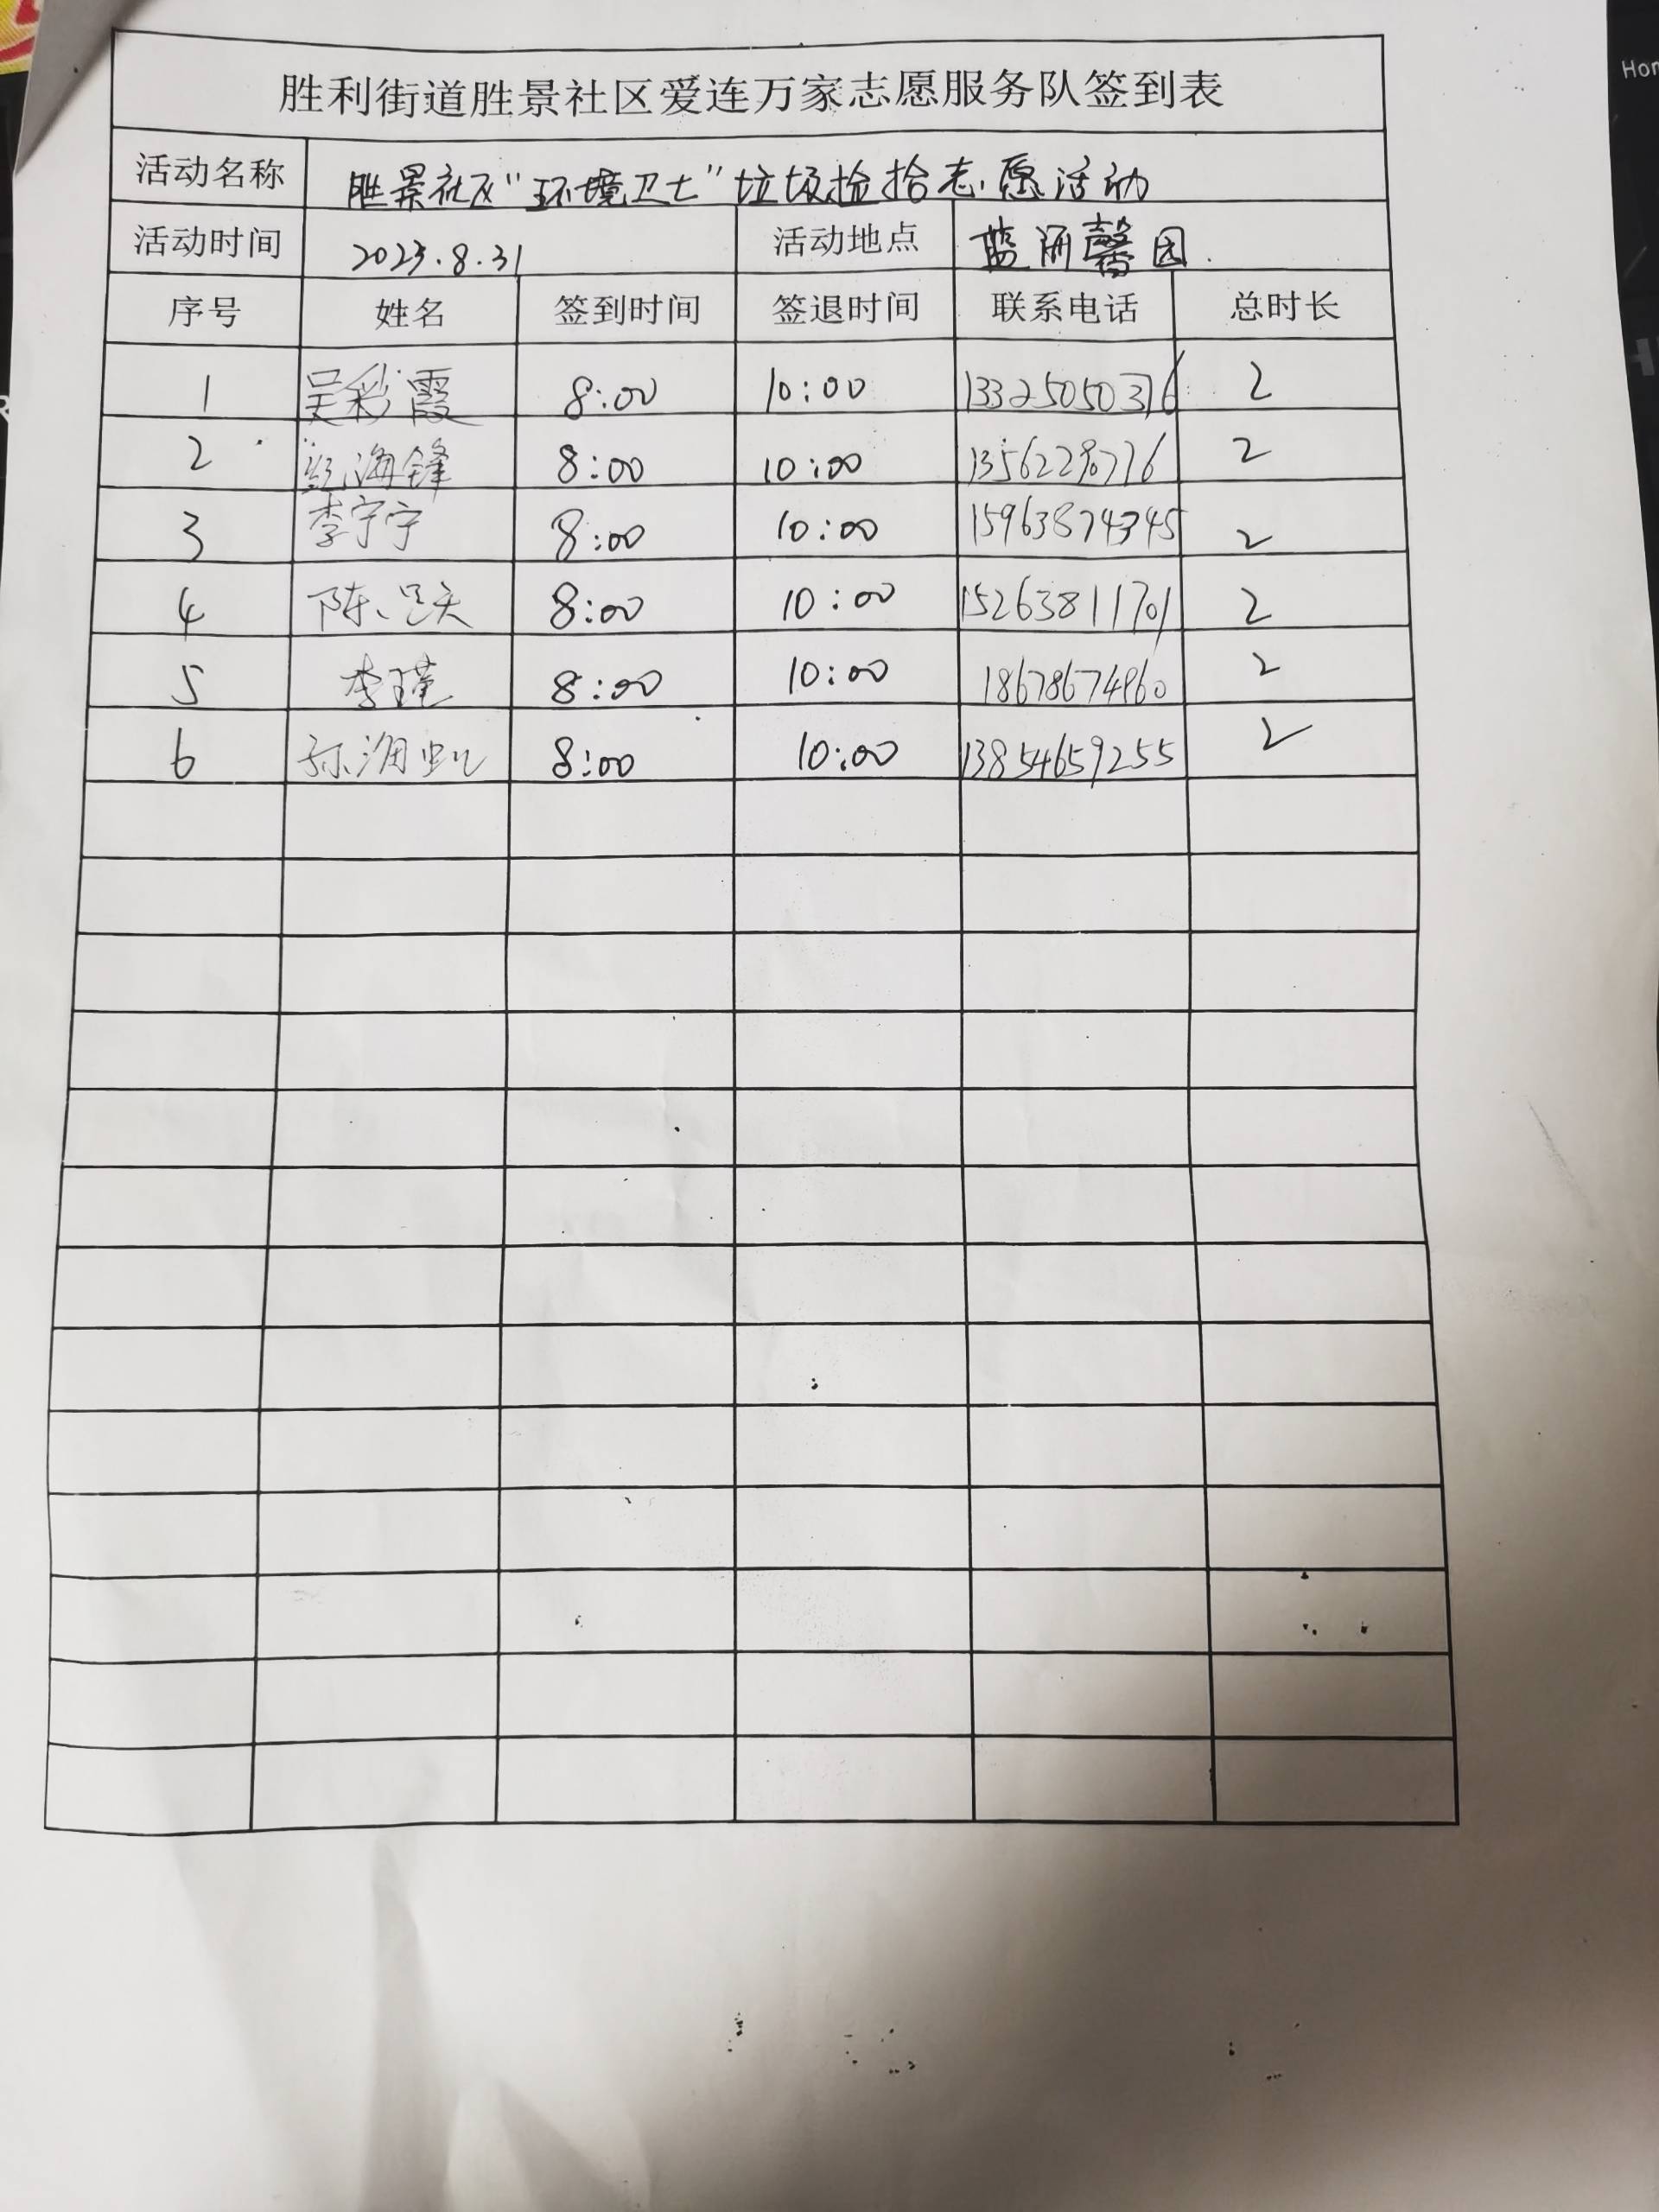 胜利街道胜景社区爱连万家志愿服务队签到表
活动名称 胜景社区“环境卫士”垃圾捡拾志愿活动
活动时间 2023.8.31 活动地点 蓝海馨园
序号 姓名 签到时间 签退时间 联系电话 总时长
1 吴彩霞 8:00 10:00 13325050376 2
2 海锋 8:00 10:00 2
3 李宁宁 8:00 10:00 15963874345 2
4 陈 8:00 10:00 15263811701 2
5 李瑾 8:00 10:00 18678674960 2
6 8:00 10:00 13854659255 2